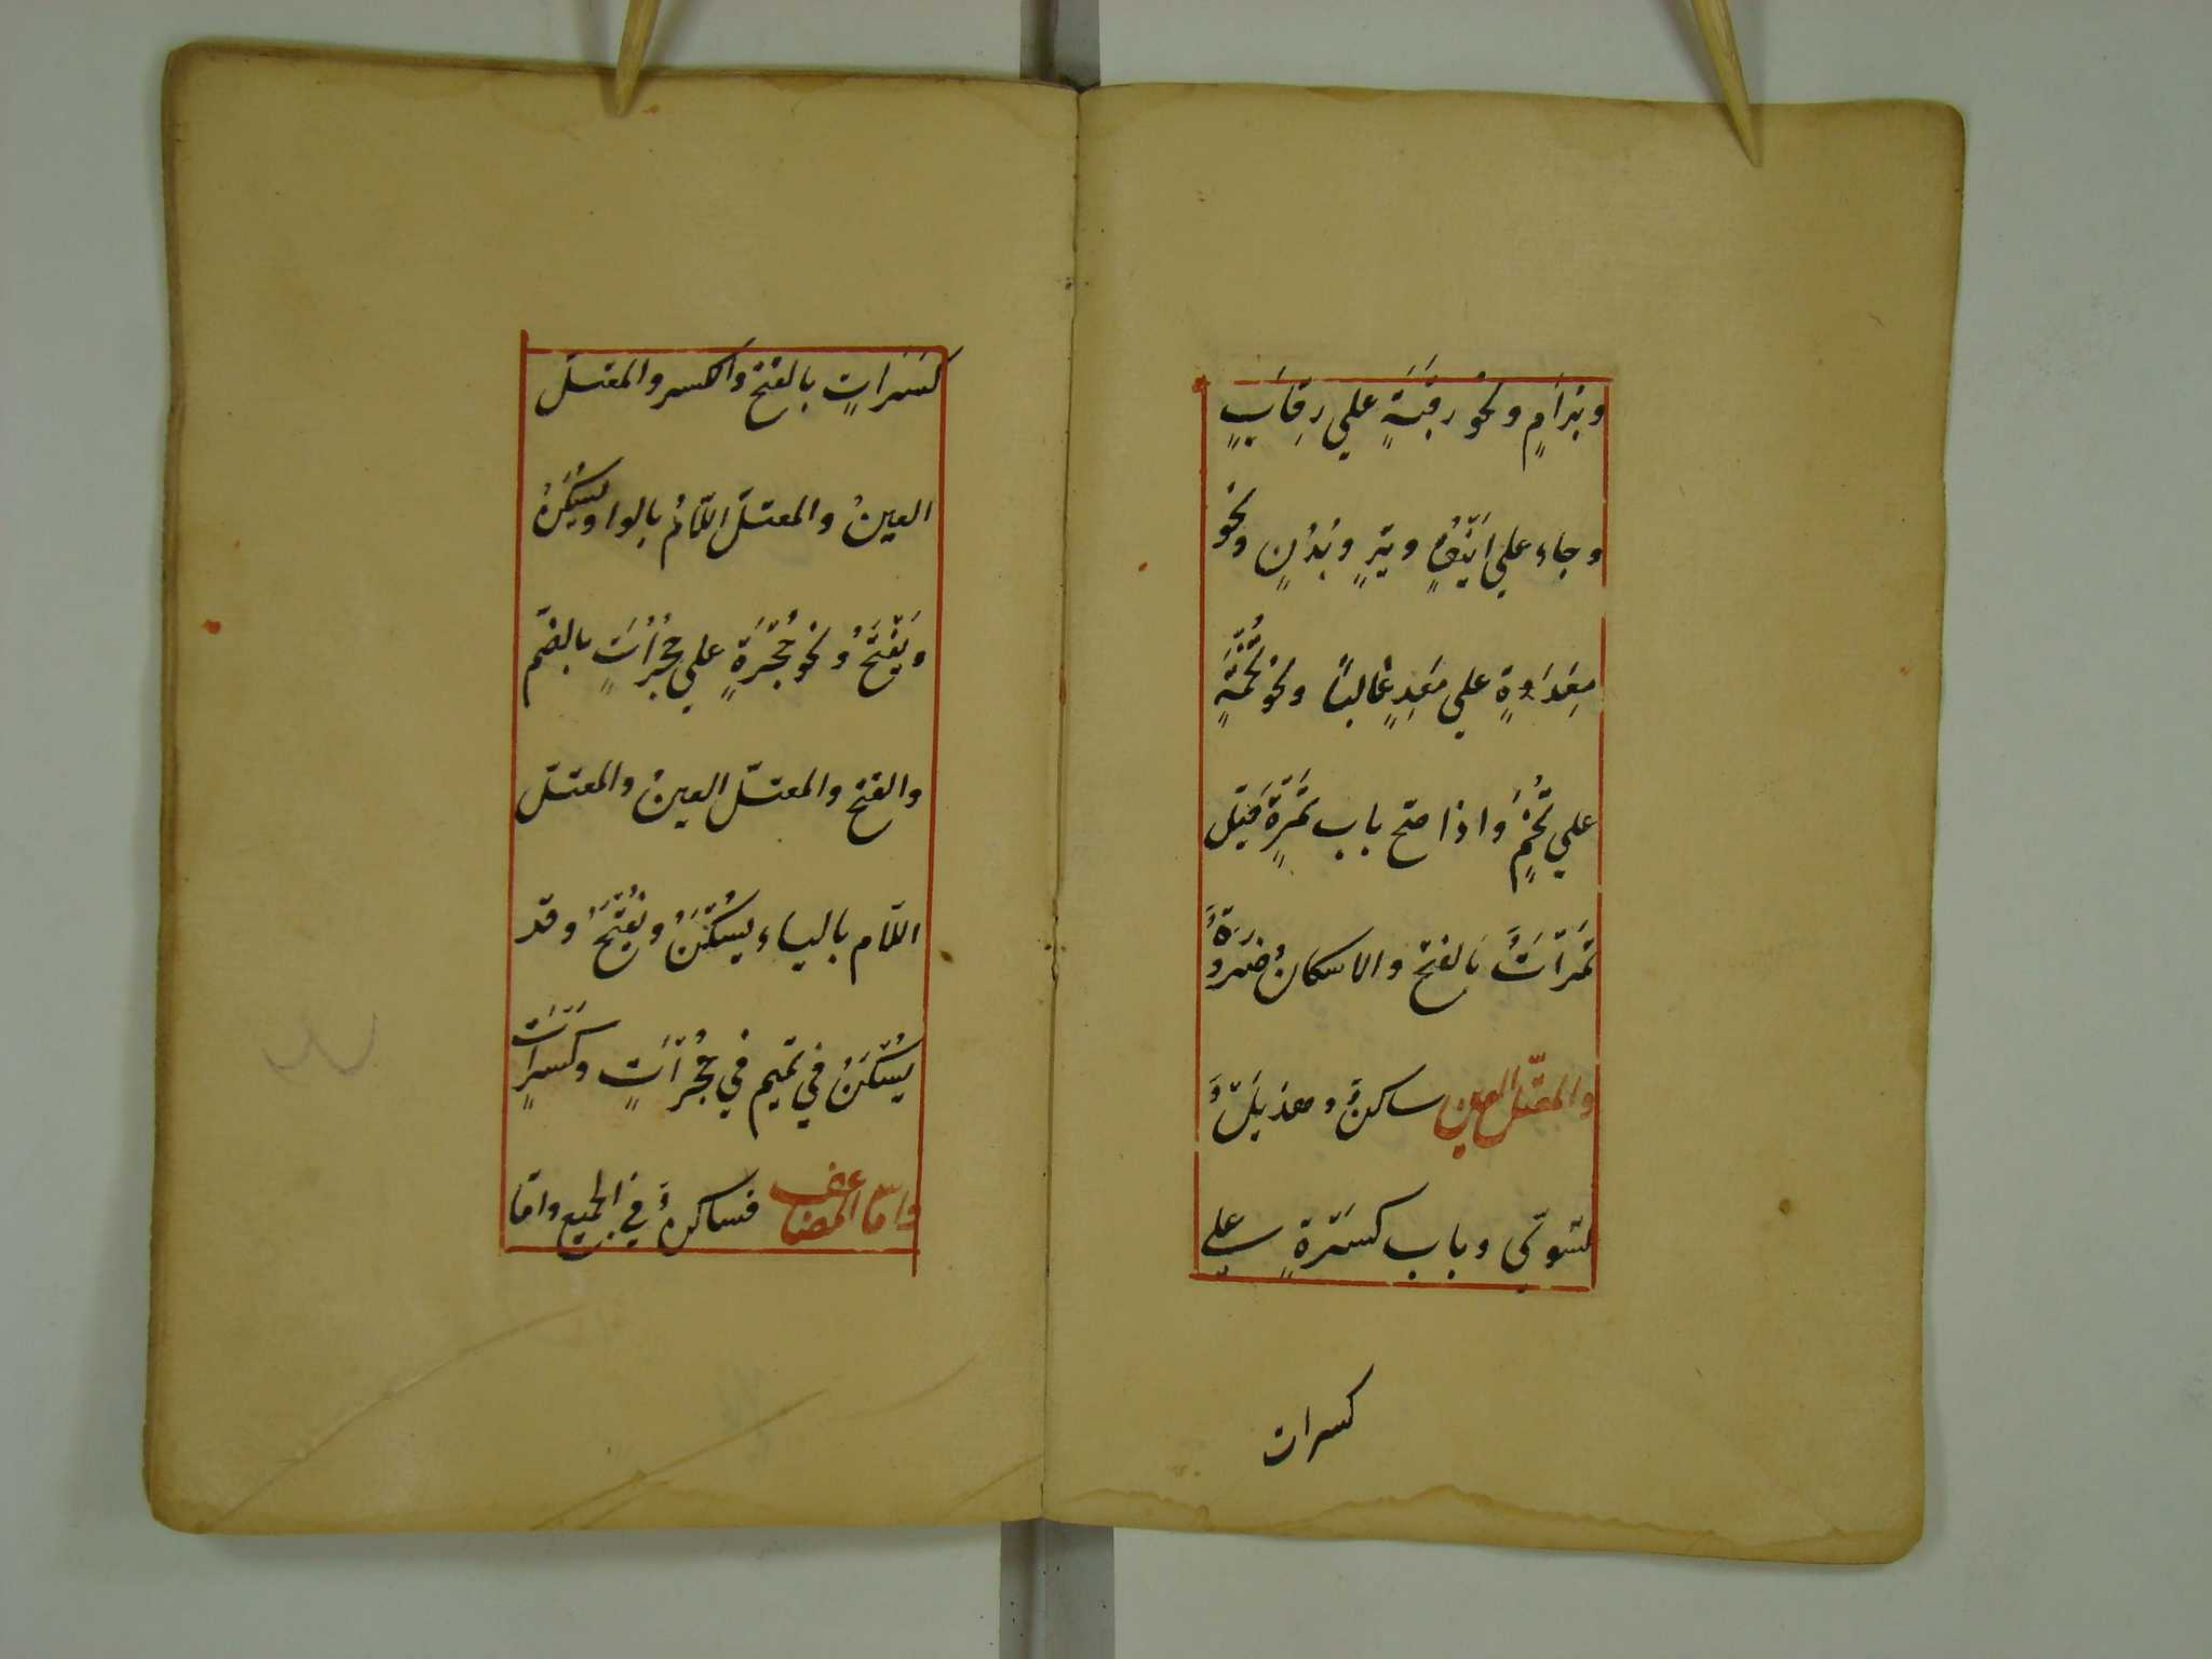 وبرامٍ ونحو رقبةٍ علي رِقابٍ
وجاء علي اَيْنُقٍ وتِيَرٍ وبُدْنٍ ونحو
مَعِدَةٍ علي مَعِدٍ غالبًا ونحو تُخَمَةٍ
علي تُخَمٍ واذا صحّ باب تَمْرَةٍ قيل
تَمَرَاتٌ بالفتح والاسكانُ ضرورةٌ
والمعتلّ العين ساكنٌ وهذيلٌ
تسوّي وباب كسرةٍ علي
كسرات
كسَراتٍ بالفتح والكسر والمعتلّ
العينُ والمعتلّ اللّامُ بالواو يُسَكَّنُ
ويُفْتَحُ ونحو حُجْرَةٍ علي حُجُرَاتٍ بالضّم
والفتح والمعتلّ العينُ والمعتلّ
اللّام بالياء يُسَكَّنُ ويُفْتَحُ وقد
يُسَكَّنُ في تميم في حُجْرَاتٍ وكِسْرَاتٍ
وامّا المضاعف فساكنٌ في الجميع وامّا